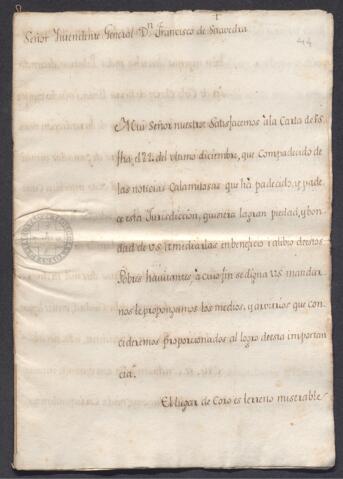 Señor Yntendente General Dn Francisco de Saavedra
44
Mui Señor nuestro: Satisfacemos à la Carta de VS
fha, el 22 del ultimo diciembre, que Compadecido de
las noticias Calamitosas que hà padecido, y pade
ce esta Jurisdiccion, la gran piedad, y bon
dad de VS. remediarlas en beneficio y alibio de estos
Pobres havitantes, à cuio fin se digna VS mandar
nos le propongamos los medios, y arvitrios que con
cideremos proporcionados al logro de esta importan
cia.
El lugar de Coro es terreno miserable